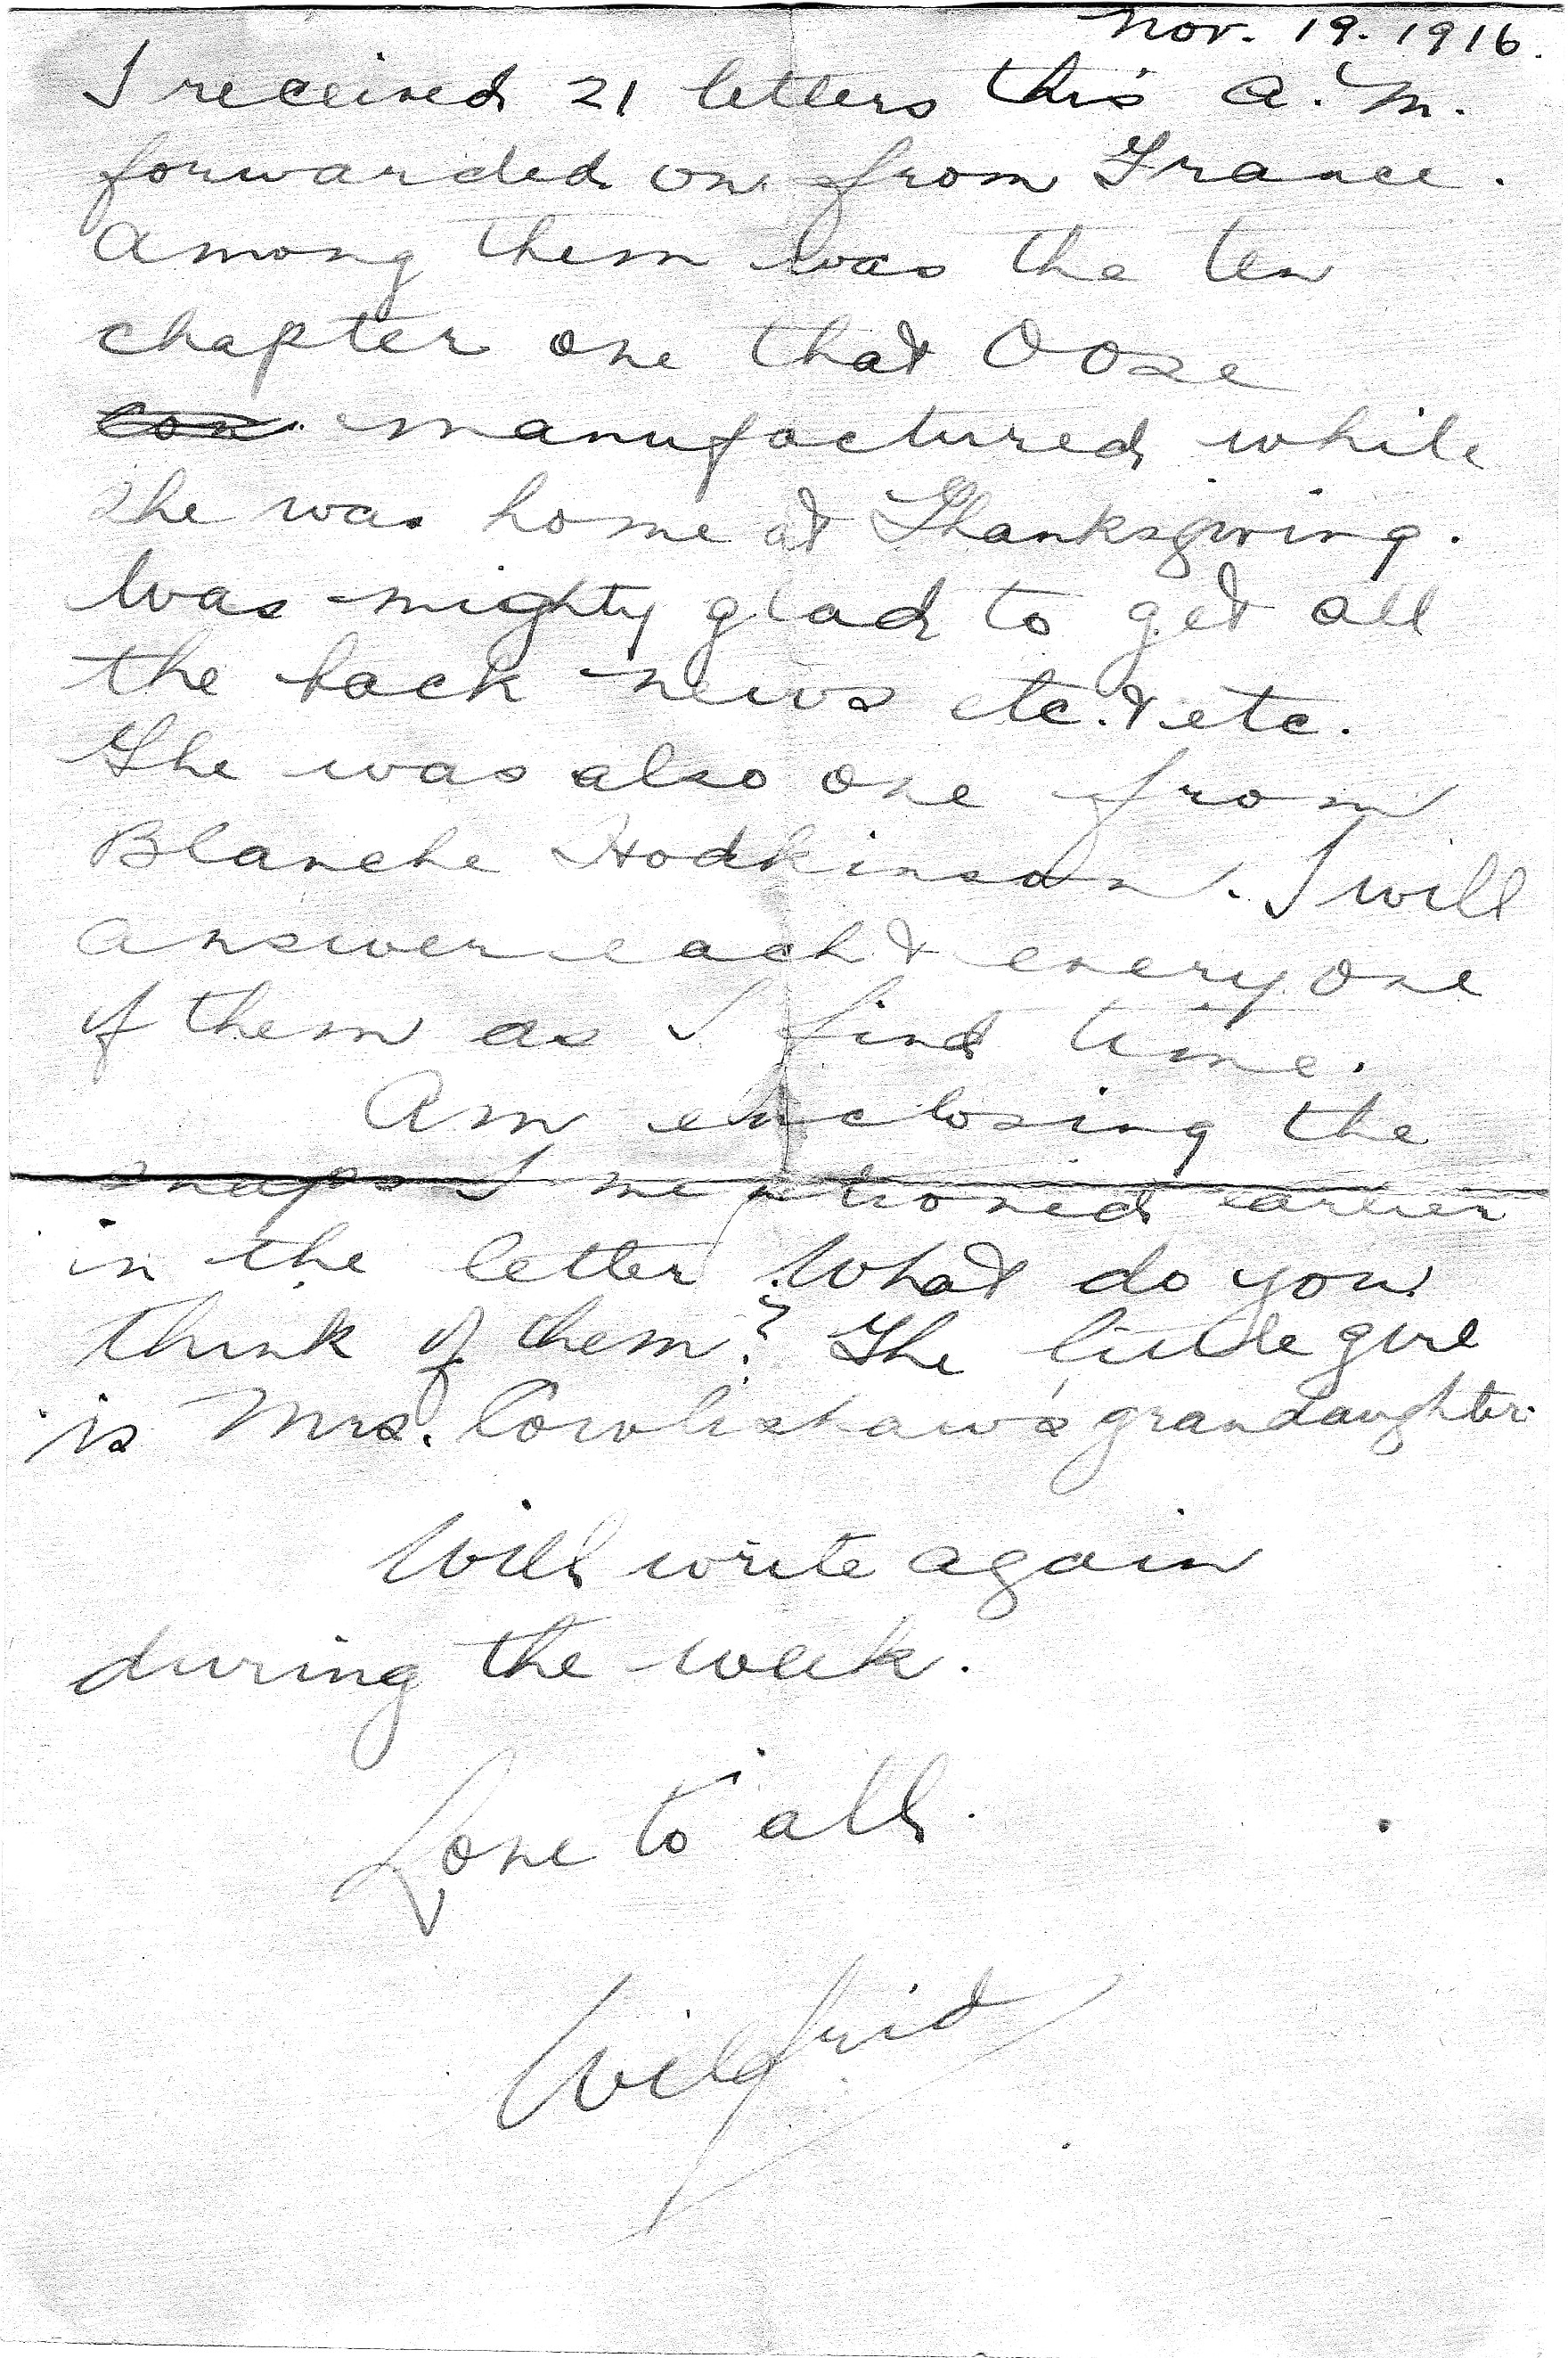 Nov. 19. 1916.
I received 21 letters this A.M.
forwarded on from France.
Among them was the ten
chapter one that Ooze
con manufactured while
she was home at Thanksgiving.
Was mighty glad to get all
the back news etc. & etc.
The was also one from
Blanche Hodkinson. I will
answer each & every one
of them as I find time.
Am enclosing the
snaps I mentioned earlier
in the letter. What do you
think of them? The little girl
is Mrs. Cowlishaw's grandaughter.
Will write again
during the week.
Love to all.
Wilfrid